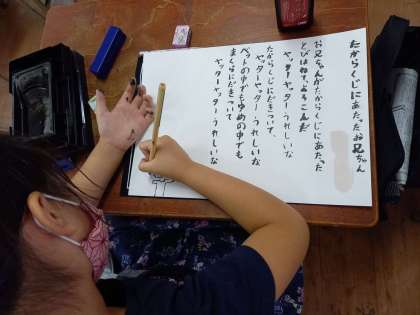 たからくじにあたったお兄ちゃん
お兄ちゃんがたからくじにあたった
とびはねて、よろこんだ
ヤッターヤッターうれしいな
たからくじにだきついて、
ヤッターヤッター、うれしいな
ベットの中でもゆめの中でも
まくらにだきついて
ヤッターヤッターうれしいな